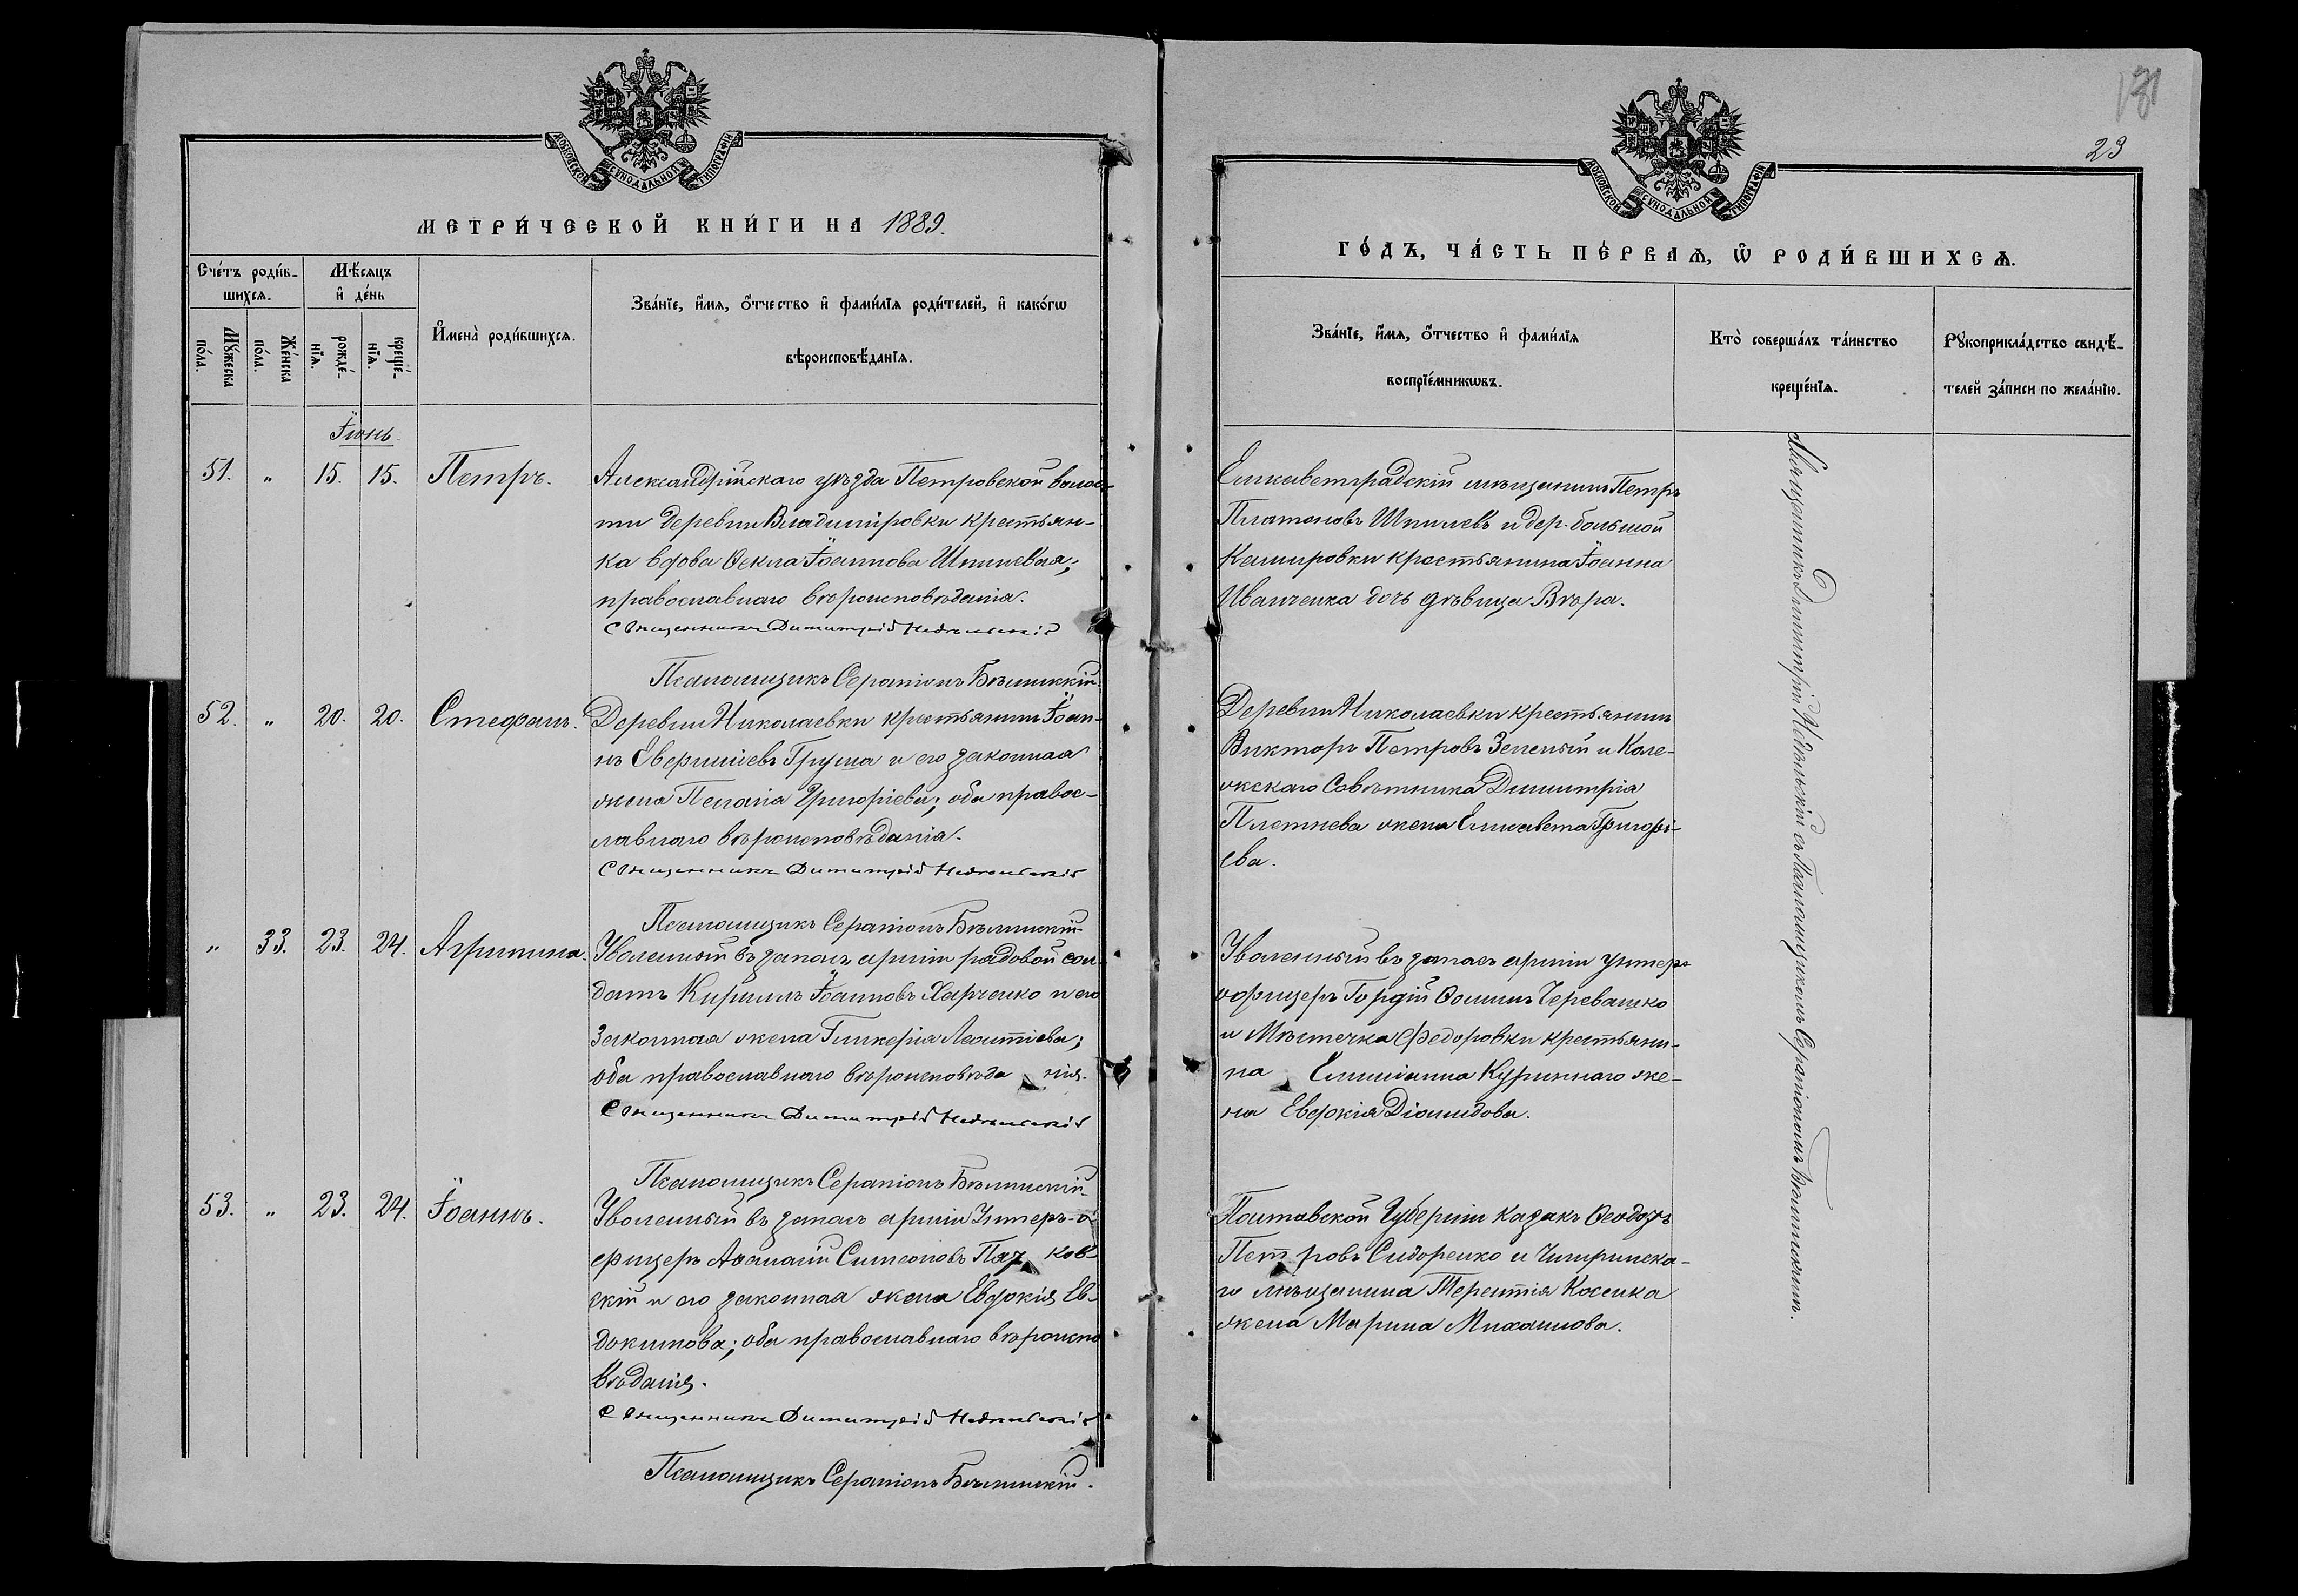 МОСКОВСКОЙ СѴНОДАЛЬНОЙ ТИПОГРАФІИ
МЕТРИ́ЧЕСКОЙ КНИ́ГИ НА 1889.
Сче́тъ роди́в-
шихсѧ.
Мѣ́сѧцъ
и҆ де́нь
Мꙋ́жеска
по́ла.
Же́нска
по́ла.
рожде́-
нїѧ.
креще́-
нїѧ.
И҆мена̀ роди́вшихсѧ.
Зва́нїе, и҆́мѧ, ѻ҆́тчество и҆ фами́лїѧ роди́телей, и҆ како́гѡ
вѣроисповѣ́данїѧ.
Іюнь.
51. " 15. 15. Петръ.
Александрійскаго уѣзда Петровской волос-
ти деревни Владиміровки крестьян-
ка вдова Ѳекла Іоаннова Шпилевая;
православнаго вѣроисповѣданія.
Священникъ Димитрій Недѣльскій
Псаломщикъ Серапіонъ Бѣлинскій.
52. " 20. 20. Стефанъ.
Деревни Николаевки крестьянинъ Іоан-
нъ Евфиміевъ Груша и его законная
жена Пелагія Григоріева; оба правос-
лавнаго вѣроисповѣданія.
Священникъ Димитрій Недѣльскій
Псаломщикъ Серапіонъ Бѣлинскій
" 33. 23. 24. Агрипина.
Уволенный въ запасъ арміи рядовой сол-
датъ Кириллъ Іоанновъ Харченко и его
законная жена Гликерія Леонтіева;
оба православнаго вѣроисповѣда нія.
Священникъ Димитрій Недѣльскій
Псаломщикъ Серапіонъ Бѣлинскій
53. " 23. 24. Іоаннъ.
Уволенный въ запасъ арміи Унтеръ-о-
фицеръ Аѳанасій Симеоновъ ков-
скій и его законная жена Евдокія Ев-
докимова; оба православнаго вѣроиспо
вѣданія.
Священникъ Димитрій Недѣльскій
Псаломщикъ Серапіонъ Бѣлинскій.
23
МОСКОВСКОЙ СѴНОДАЛЬНОЙ ТИПОГРАФІИ
ГО́ДЪ, ЧА́СТЬ ПЕ́РВАѦ, Ѽ РОДИ́ВШИХСѦ.
Зва́нїе, и҆́мѧ, ѻ҆́тчество и҆ фами́лїѧ
воспрїе́мникѡвъ.
Кто̀ соверша́лъ та́инство
креще́нїѧ.
Рꙋкоприкла́дство свидѣ́-
телей за́писи по жела́нїю.
Елисаветградскій мѣщанинъ Петръ
Платоновъ Шпилевъ и дер. большой
крестьянина Іоанна
Иванченка дочь дѣвица Вѣра.
Деревни Николаевки крестьянинъ
Викторъ Петровъ Зеленый и Коле-
жскаго Совѣтника Димитрія
Плетнева жена Елисавета Григорі-
ева.
Уволенный въ запасъ арміи унтеръ-
офицеръ Гордій Ѳоминъ Черевашко
и Мѣстечка Федоровки крестьяни-
на Емиліанна Куриннаго же-
на Евдокія Діомидова.
Полтавской Губерніи казакъ Ѳеодоръ
Пет ровъ Сидоренко и Чигиринска-
го мѣщанина Терентія Косенка
жена Марина Михаилова.
Священникъ Димитрій Недѣльскій съ Псаломщикомъ Серапіономъ Бѣлинскимъ.